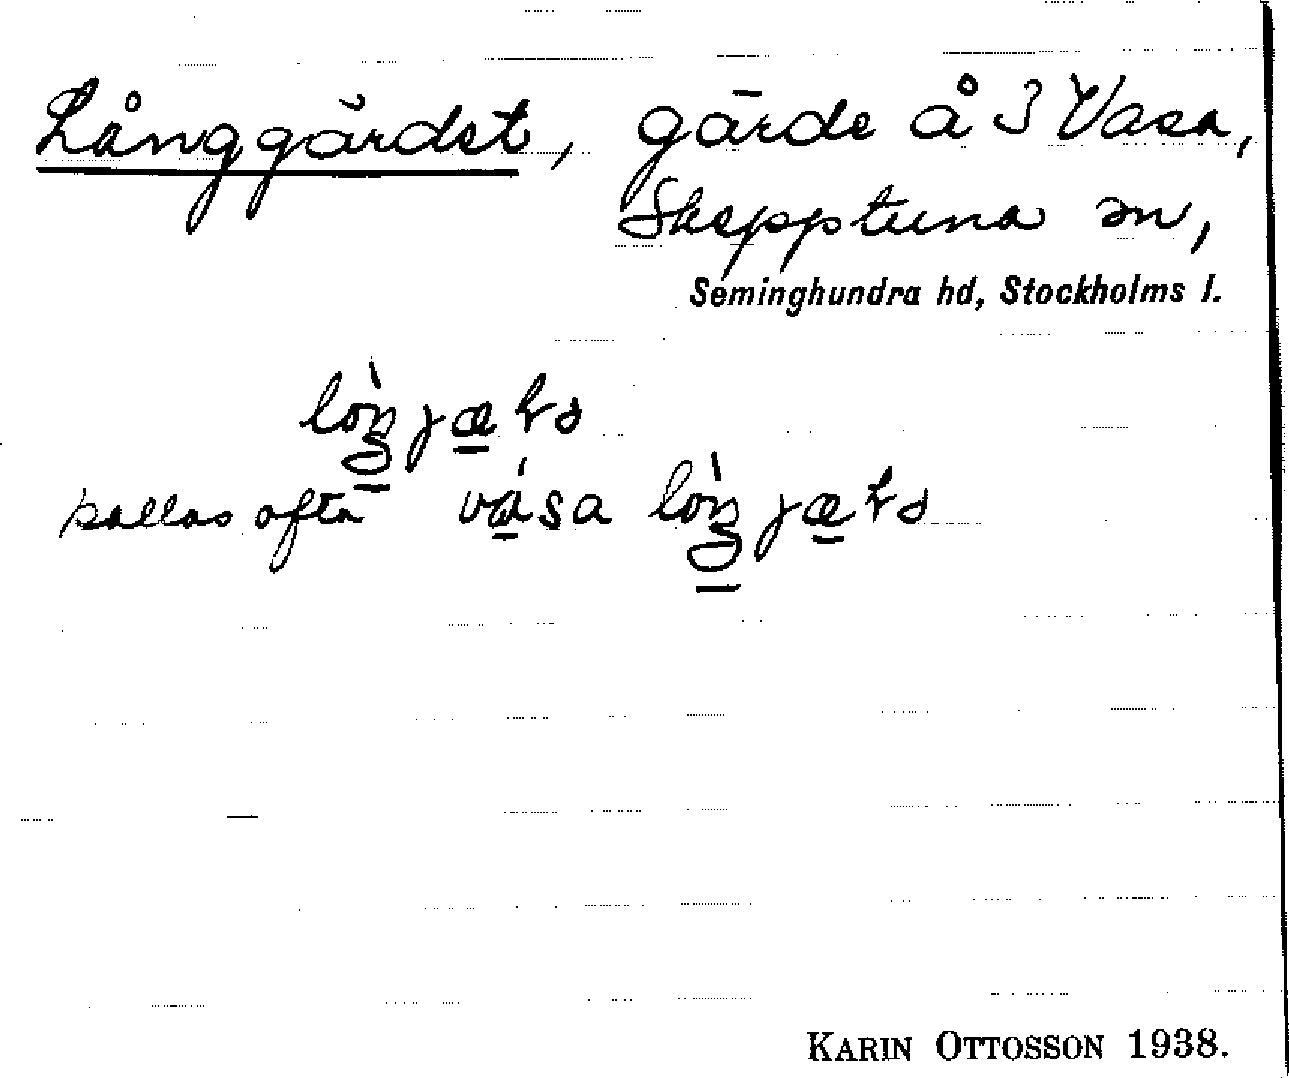 Långgärdet, gärde å 3 Vasa,
Skepptuna sn,
Seminghundra hd, Stockholms l.
kallas ofta
KARIN OTTOSSON 1938.